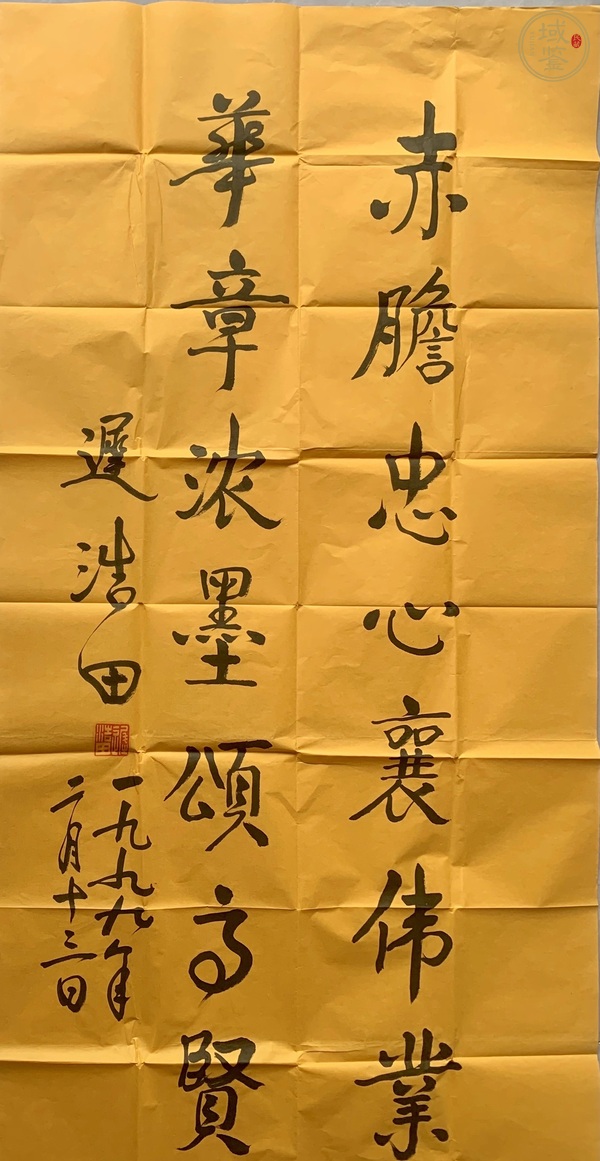 赤膽忠心襄伟業
華章浓墨頌高賢
遲浩田
一九九九年
二月十三日
域鉴